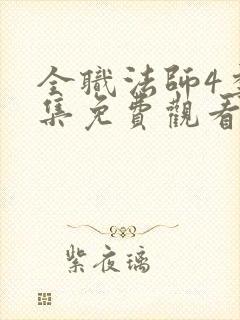 全職法師4
集免費觀看
紫夜璃